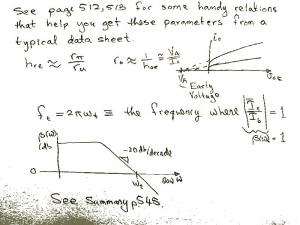 See page 512, 513 for some handy relations
that help you get these parameters from a
typical data sheet.
hre ≈ rπ/ru
ro ≈ 1/hoe ≈ VA/Ic
Ic
VA
VCE
Early
Voltage
ft = 2πωt ≡ the frequency where |Ic/Ib| = 1
β(ω) = 1
β(ω)
/db
-20db/decade
0
ωt
ω
See Summary p545